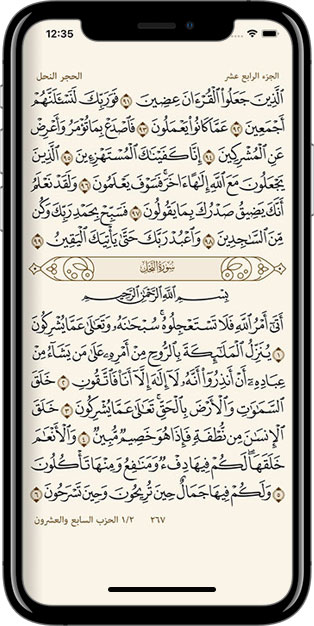 12:35
الجزء الرابع عشر
الحجر النحل
ٱلَّذِينَ جَعَلُوا۟ ٱلْقُرْءَانَ عِضِينَ ٩١ فَوَرَبِّكَ لَنَسْـَٔلَنَّهُمْ
أَجْمَعِينَ ٩٢ عَمَّا كَانُوا۟ يَعْمَلُونَ ٩٣ فَٱصْدَعْ بِمَا تُؤْمَرُ وَأَعْرِضْ
عَنِ ٱلْمُشْرِكِينَ ٩٤ إِنَّا كَفَيْنَٰكَ ٱلْمُسْتَهْزِءِينَ ٩٥ ٱلَّذِينَ
يَجْعَلُونَ مَعَ ٱللَّهِ إِلَٰهًا ءَاخَرَ ۚ فَسَوْفَ يَعْلَمُونَ ٩٦ وَلَقَدْ نَعْلَمُ
أَنَّكَ يَضِيقُ صَدْرُكَ بِمَا يَقُولُونَ ٩٧ فَسَبِّحْ بِحَمْدِ رَبِّكَ وَكُن
مِّنَ ٱلسَّٰجِدِينَ ٩٨ وَٱعْبُدْ رَبَّكَ حَتَّىٰ يَأْتِيَكَ ٱلْيَقِينُ ٩٩
سُورَةُ النَّحْلِ
بِسْمِ ٱللَّهِ ٱلرَّحْمَٰنِ ٱلرَّحِيمِ
أَتَىٰٓ أَمْرُ ٱللَّهِ فَلَا تَسْتَعْجِلُوهُ ۚ سُبْحَٰنَهُۥ وَتَعَٰلَىٰ عَمَّا يُشْرِكُونَ
١ يُنَزِّلُ ٱلْمَلَٰٓئِكَةَ بِٱلرُّوحِ مِنْ أَمْرِهِۦ عَلَىٰ مَن يَشَآءُ مِنْ
عِبَادِهِۦٓ أَنْ أَنذِرُوٓا۟ أَنَّهُۥ لَآ إِلَٰهَ إِلَّآ أَنَا۠ فَٱتَّقُونِ ٢ خَلَقَ
ٱلسَّمَٰوَٰتِ وَٱلْأَرْضَ بِٱلْحَقِّ ۚ تَعَٰلَىٰ عَمَّا يُشْرِكُونَ ٣ خَلَقَ
ٱلْإِنسَٰنَ مِن نُّطْفَةٍ فَإِذَا هُوَ خَصِيمٌ مُّبِينٌ ٤ وَٱلْأَنْعَٰمَ
خَلَقَهَا ۗ لَكُمْ فِيهَا دِفْءٌ وَمَنَٰفِعُ وَمِنْهَا تَأْكُلُونَ
٥ وَلَكُمْ فِيهَا جَمَالٌ حِينَ تُرِيحُونَ وَحِينَ تَسْرَحُونَ ٦
٢٦٧
١/٢ الحزب السابع والعشرون